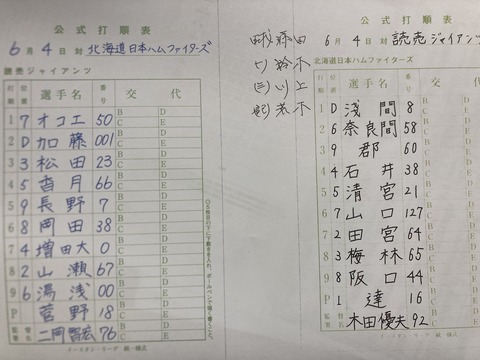 公式打順表
6月4日対 北海道日本ハムファイターズ
読売ジャイアンツ
打順 位置 選手名 番号 交代
B C D E
1 7 オコエ 50
2 D 加藤 001
3 3 松田 23
4 5 香月 66
5 9 長野 7
6 8 岡田 38
7 4 増田大 0
8 2 山瀬 67
9 6 湯浅 00
P 菅野 18
監督 署名 二岡智宏 76
イースタン・リーグ 統一様式
鈴木
川上
荒木
公式打順表
6月4日対 読売ジャイアンツ
北海道日本ハムファイターズ
打順 位置 選手名 番号 交代
B C D E
1 D 浅間 8
2 6 奈良間 58
3 9 郡 60
4 4 石井 38
5 5 清宮 21
6 7 山口 127
7 2 田宮 64
8 3 梅林 65
9 8 阪口 44
P 1 達 16
監督 署名 木田優夫 92
イースタン・リーグ 統一様式